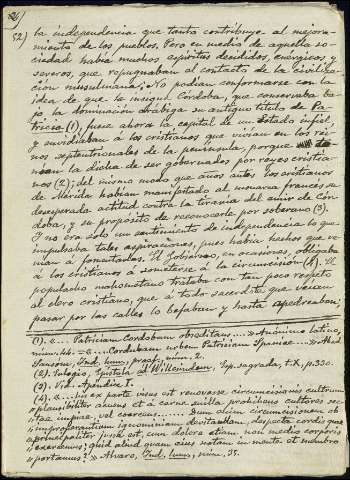 52)
la independencia que tanto contribuye al mejora-
miento de los pueblos. Pero en medio de aquella so-
ciedad había muchos espíritus decididos, enérgicos y
severos, que repugnaban el contacto de la civiliza-
ción musulmana; No podían conformarse con la
idea de que la insigne Córdoba, que conservaba ba-
jo la dominación arábiga su antiguo título de Pa-
tricia (1), fuese ahora la capital de un Estado infiel,
y envidiaban á los cristianos que vivían en los rei-
nos septentrionales de la península, porque te-
nían la dicha de ser gobernados por reyes cristia-
nos (2); del mismo modo que años antes los cristianos
de Mérida habían manifestado al monarca francés su
desesperada actitud contra la tiranía del emir de Cór-
doba, y su propósito de reconocerle por soberano (3).
Y no era solo un sentimiento de independencia lo que
impulsaba tales aspiraciones, pues había hechos que ve-
nían á fomentarlas. El gobierno, en ocasiones, obligaba
á los cristianos á someterse á la circuncisión (4). El
populacho mahometano trataba con tan poco respeto
al clero cristiano, que á todo sacerdote que veían
pasar por las calles lo befaban y hasta apedreaban;
(1). «... Patriciam Cordobam obseditans ...» Anónimo latino,
núm. «... Cordubam urbem Patriciam Spaniae ...»
Ind. lum., praef., núm. 2.
(2). Eulogio, Epistola ad Willesindum, Esp. sagrada, t. X, p. 330.
(3). Vid. Apéndice I.
(4). «... ex parte visus est renovasse circumcisionis cultrum
causa et a carne suilla prohibens cultores sec-
tae impiae, vel coercens ...... Dum enim circumcisionem ob
improperantium ignominiam devitandam, despecta cordis quae
principaliter jussa est, cum dolore etiam non medio corporis
exercemus; quid aliud quam ejus notam in mente et membro
portamus?» Alvaro, Ind. lum., núm. 35.